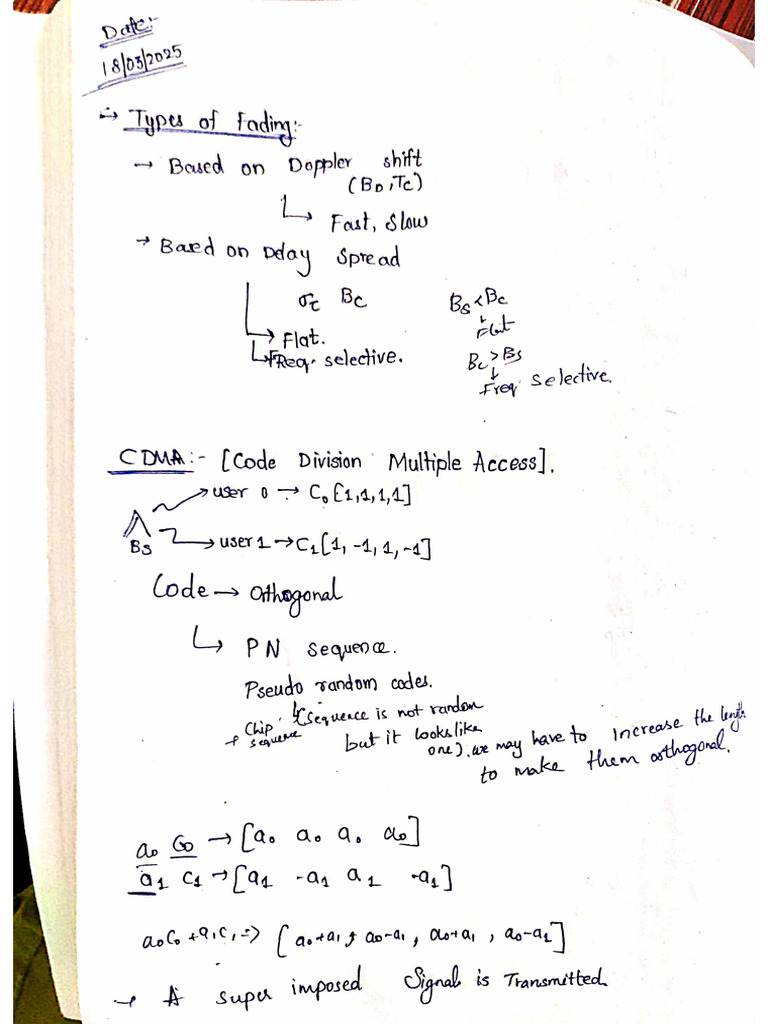 Date:-
18/03/2025
→ Types of Fading:-
→ Based on Doppler shift
(BD, Tc)
↳ Fast, Slow
→ Based on Delay Spread
στ Bc
Bs < Bc
↓
Flat
→ Flat.
↳ FReq. selective.
Bc > Bs
↓
Freq selective.
CDMA:- [Code Division Multiple Access].
→ user 0 → C0[1,1,1,1]
BS
→ user 1 → C1[1, -1, 1, -1]
Code → Orthogonal
↳ PN sequence.
Pseudo random codes.
→ Chip sequence
↳ (sequence is not random
but it looks like
one). we may have to increase the length
to make them orthogonal.
a0 C0 → [a0 a0 a0 a0]
a1 C1 → [a1 -a1 a1 -a1]
a0C0 + a1C1 => [a0+a1, a0-a1, a0+a1, a0-a1]
→ A super imposed Signal is Transmitted.